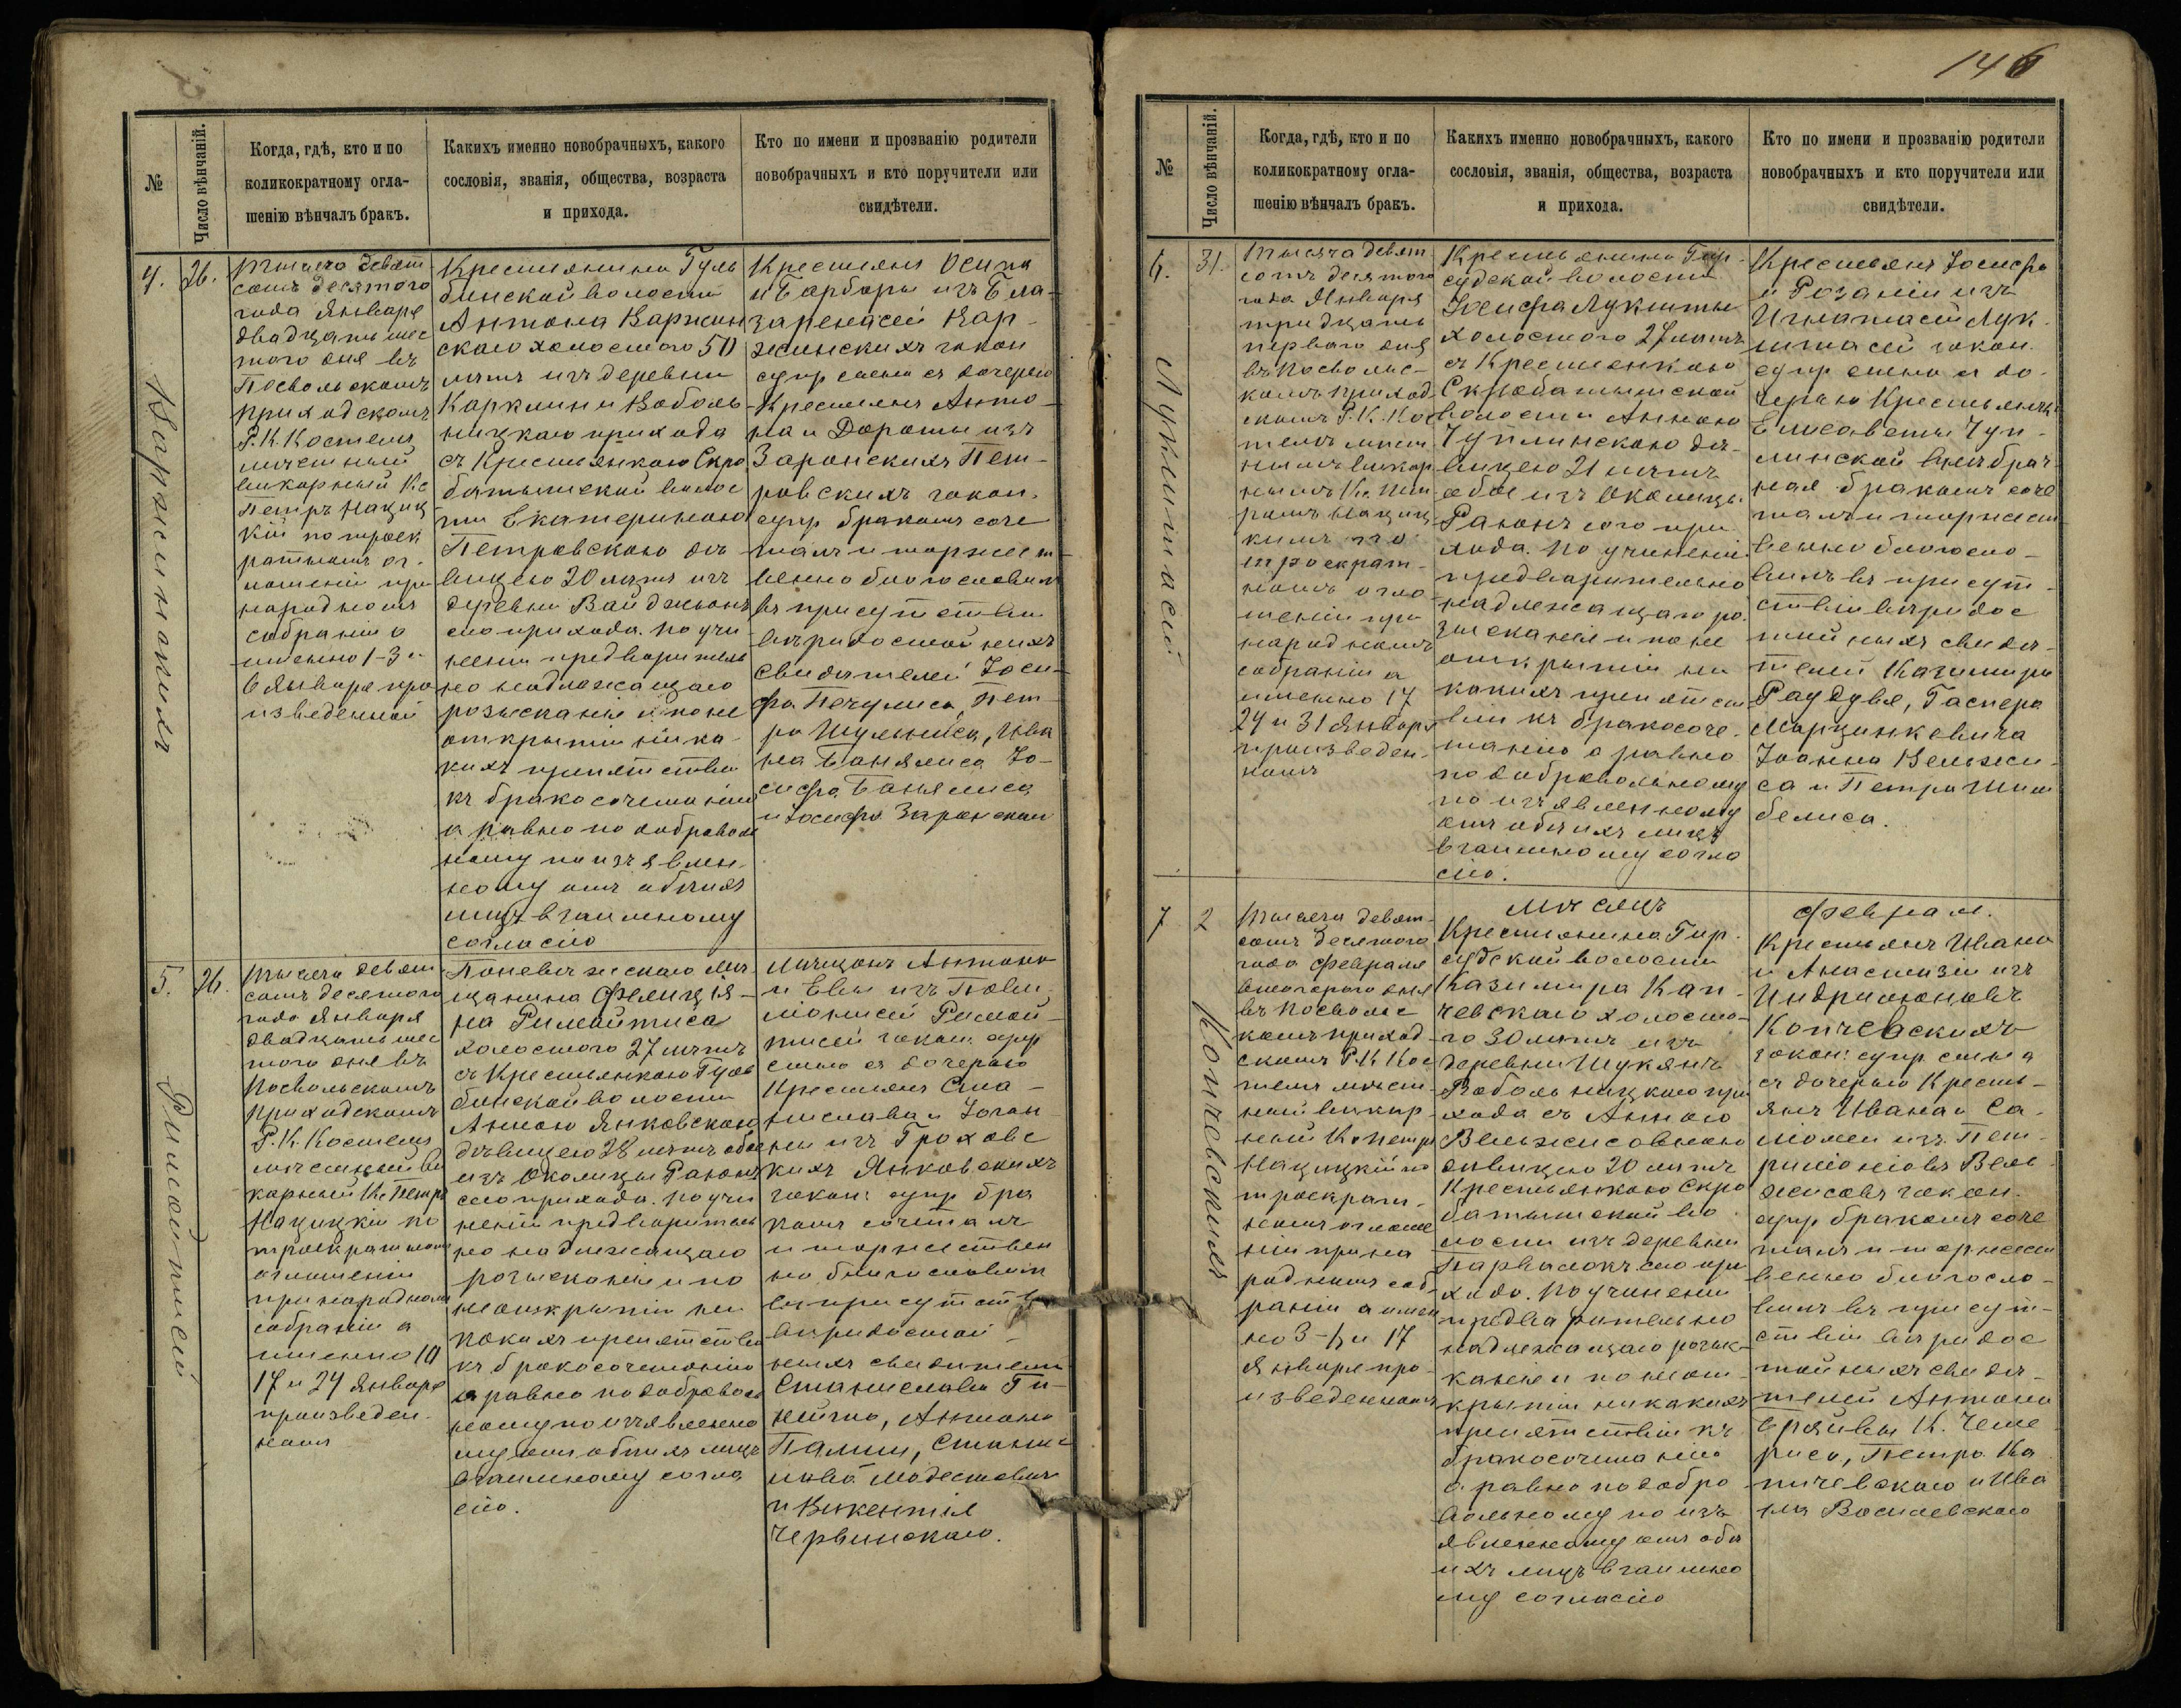 146
№
Число вѣнчаній.
Когда, гдѣ, кто и по
коликократному огла-
шенію вѣнчалъ бракъ.
Какихъ именно новобрачныхъ, какого
сословія, званія, общества, возраста
и прихода.
Кто по имени и прозванію родители
новобрачныхъ и кто поручители или
свидѣтели.
4.
26.
Тысяча девят
сотъ десятого
года Января
двадцать шес
того дня въ
Посвольскомъ
приходскомъ
Р. К. Костелѣ
мѣстный
викарный Кс
Петръ Нациц
кій по троек
ратномъ ог-
лошеніи при
народномъ
собраніи а
именно 1-3 и
6 Января про
изведенной
Крестьянина Гуль
бинской волости
Антона Каржин
скаго холостого 50
лѣтъ изъ деревни
Карклини Вабольн
ницкаго прихода
съ Крестьянкою Скро
батышской волос
ти Екатериною
Петровскою дѣ
вицею 20 лѣтъ изъ
деревни Вайджюнъ
сего прихода. По учи
неніи предваритель
но надлежащаго
розысканія и по не
открытіи ника
кихъ препятствій
къ бракосочетанію
а равно по доброволь
ному по изъявлен
ному отъ обѣихъ
лицъ взаимному
согласію
Крестьянъ Осипа
и Барбары изъ Бла-
заренасей Кар-
жинскихъ закон
супр сына съ дочерью
Крестьянъ Анто-
на и Дороты изъ
Заронскихъ Пет-
ровскихъ закон.
супр бракомъ соче
талъ и торжест-
венно благословилъ
въ присутствіи
вѣридостойныхъ
свидѣтелей Іоси-
фа Печулиса, Пет
ра Шульниса, Ива
на Банялиса Іо-
сифа Банялиса
и Іосифа Заронскаго
Каржинскихъ
5.
26.
Тысяча девят
сотъ десятого
года Января
двадцать шес
того дня въ
Посвольскомъ
приходскомъ
Р. К. Костелѣ
мѣстный ви
карный Кс Петръ
Нацицкій по
троекратномъ
оглошеніи
при народномъ
собраніи а
именно 10
17 и 24 Января
произведен-
номъ
Поневѣжскаго мѣ
щанина Фелиція-
на Римойтиса
холостого 27 лѣтъ
съ Крестьянкою Гуль
бинской волости
Анною Янковскою
дѣвицею 28 лѣтъ обое
изъ Околицы Раюнъ
сего прихода. По учи
неніи предваритель
но надлежащаго
розысканія и по
неоткрытіи ни
какихъ препятствій
къ бракосочетанію
а равно по доброволь
ному по изъявленно
му отъ обѣихъ лицъ
взаимному согла
сію.
Мѣщанъ Антона
и Евы изъ Пови-
лонисей Римой-
тисей закон. супр
сына съ дочерью
Крестьянъ Ста-
нислава и Іоган-
ны изъ Грохове
кихъ Янковскихъ
закон: супр бра
комъ сочеталъ
и торжествен
но благословилъ
въ присутствіи
вѣридостой-
ныхъ свидѣтелей
Станислава Ги-
нейто, Антона
Палши, Станис
лава Модестовича
и Викентія
Червинскаго.
Римойтисей
№
Число вѣнчаній.
Когда, гдѣ, кто и по
коликократному огла-
шенію вѣнчалъ бракъ.
Какихъ именно новобрачныхъ, какого
сословія, званія, общества, возраста
и прихода.
Кто по имени и прозванію родители
новобрачныхъ и кто поручители или
свидѣтели.
6.
31.
Тысяча девят
сотъ десятого
года Января
тридцать
перваго дня
въ Посволь-
комъ приход
скомъ Р. К. Кос
телѣ мѣст
нымъ викар
нымъ Кс. Пет
ромъ Нациц
кимъ по
троекрат-
номъ огло
шеніи при
народномъ
собраніи а
именно 17
24 и 31 Января
произведен-
номъ
Крестьянина Гир-
судской волости
Іосифа Лукшты
холостого 27 лѣтъ
съ Крестьянкою
Скробатышской
волости Анною
Чуплинскою дѣ-
вицею 21 лѣтъ
обое изъ Околицы
Раюнъ сого при
хода. По учиненіи
предварительно
надлежащаго ро
зысканія и по не
открытіи ни
какихъ препятст
вій къ бракосоче-
танію а равно
по добровольному
по изъявленному
отъ обѣихъ лицъ
взаимному согла
сію.
Крестьянъ Іосифа
и Розаліи изъ
Игнатасей Лук-
штасей закон.
супр сына и до-
черью Крестьянки
Елисаветы Чуп-
линской внѣбрач
ная бракомъ соче
талъ и торжест
венно благосло-
вилъ въ присут-
ствіи вѣридос
тойныхъ свидѣ-
телей Казимира
Радзуя, Гаспера
Марцинкевича
Іоанна Вельжи-
са и Петра Шим
белиса.
Лукштасей
7
2
мѣсяцъ Февраль.
Тысяча девят-
сотъ десятого
года Февраля
второго дня
въ Посволь
комъ приход
скомъ Р. К. Кос
телѣ мѣст
ный викар-
ный Кс Петръ
Нацицкій по
троекрат-
номъ оглоше
ніи при на
родномъ соб-
раніи а имен
но 3-6 и 17
Января про-
изведенномъ
Крестьянина Гир-
судской волости
Казимира Кап-
чевскаго холосто-
го 30 лѣтъ изъ
деревни Шукянъ
Вабольницкаго при
хода съ Анною
Вельжисовною
дѣвицею 20 лѣтъ
Крестьянкою Скро
батышской во-
лости изъ деревни
Парвалокъ сего при
хода. По учиненіи
предварительно
надлежащаго розыс-
канія и по неот-
крытіи никакихъ
препятствій къ
бракосочетанію
а равно по добро
вольному по изъ
явленному отъ обѣ
ихъ лицъ взаимно
му согласію
Крестьянъ Ивана
и Анастазіи изъ
Индрилюновъ
Копчевскихъ
закон: супр сына
съ дочерью Кресть-
янъ Ивана и Са-
ломеи изъ Пет-
рилюніовъ Вель-
жисовъ закон.
супр бракомъ соче
талъ и торжест
венно благосло-
вилъ въ присут-
ствіи вѣридос
тойныхъ свидѣ-
телей Антона
К. Чеме
риса, Петра Ка
пчевскаго и Ива
на Восилевскаго
Копчевскихъ